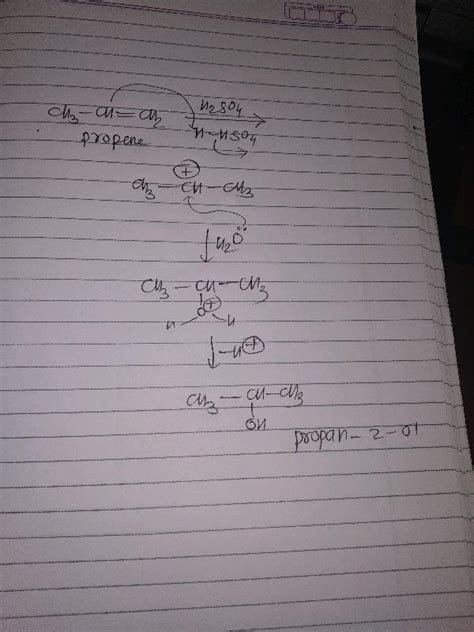 CH3 — CH = CH2 H2SO4
propene H — HSO4
⊕
CH3 — CH — CH3
↓ H2Ö
CH3 — CH — CH3
O⊕
H H
↓ —H⊕
CH3 — CH — CH3
OH
propan - 2 - ol